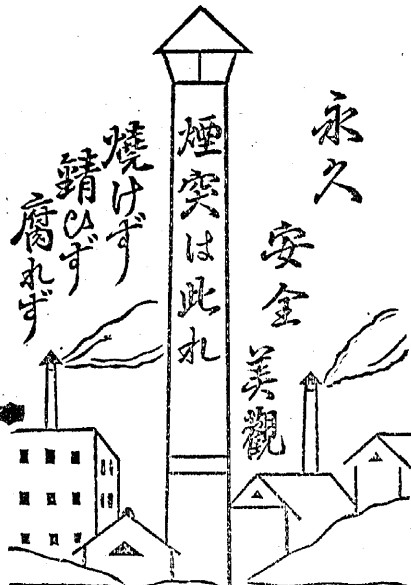 永久
安全
美觀
煙突は此れ
燒けず
錆びず
腐れず